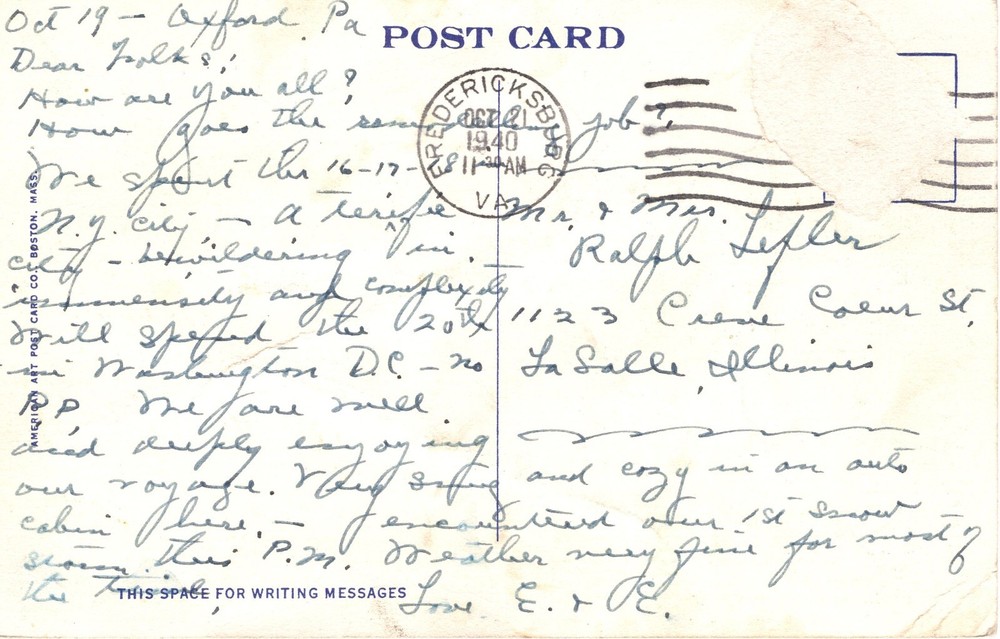 POST CARD
Oct 19 - Oxford Pa
Dear Folks;
How are you all?
How goes the remodeling job?
We spent the 16-17-18
N.Y. City - A terific
city - bewildering in
immensity and complexity
Will spend the 20th
in Washington D.C. - no
P.P. We are well
and deeply enjoying
our voyage. Very snug
and cozy in an auto
cabin here. - encountered our 1st snow
storm this P.M. Weather very fine for most of
the travel,
Love E. & E.
FREDERICKSBURG
OCT 21
1940
11 30 AM
VA.
Mr. & Mrs.
Ralph Lefler
1123 Creve Coeur St.
LaSalle, Illinois
AMERICAN ART POST CARD CO., BOSTON, MASS.
THIS SPACE FOR WRITING MESSAGES